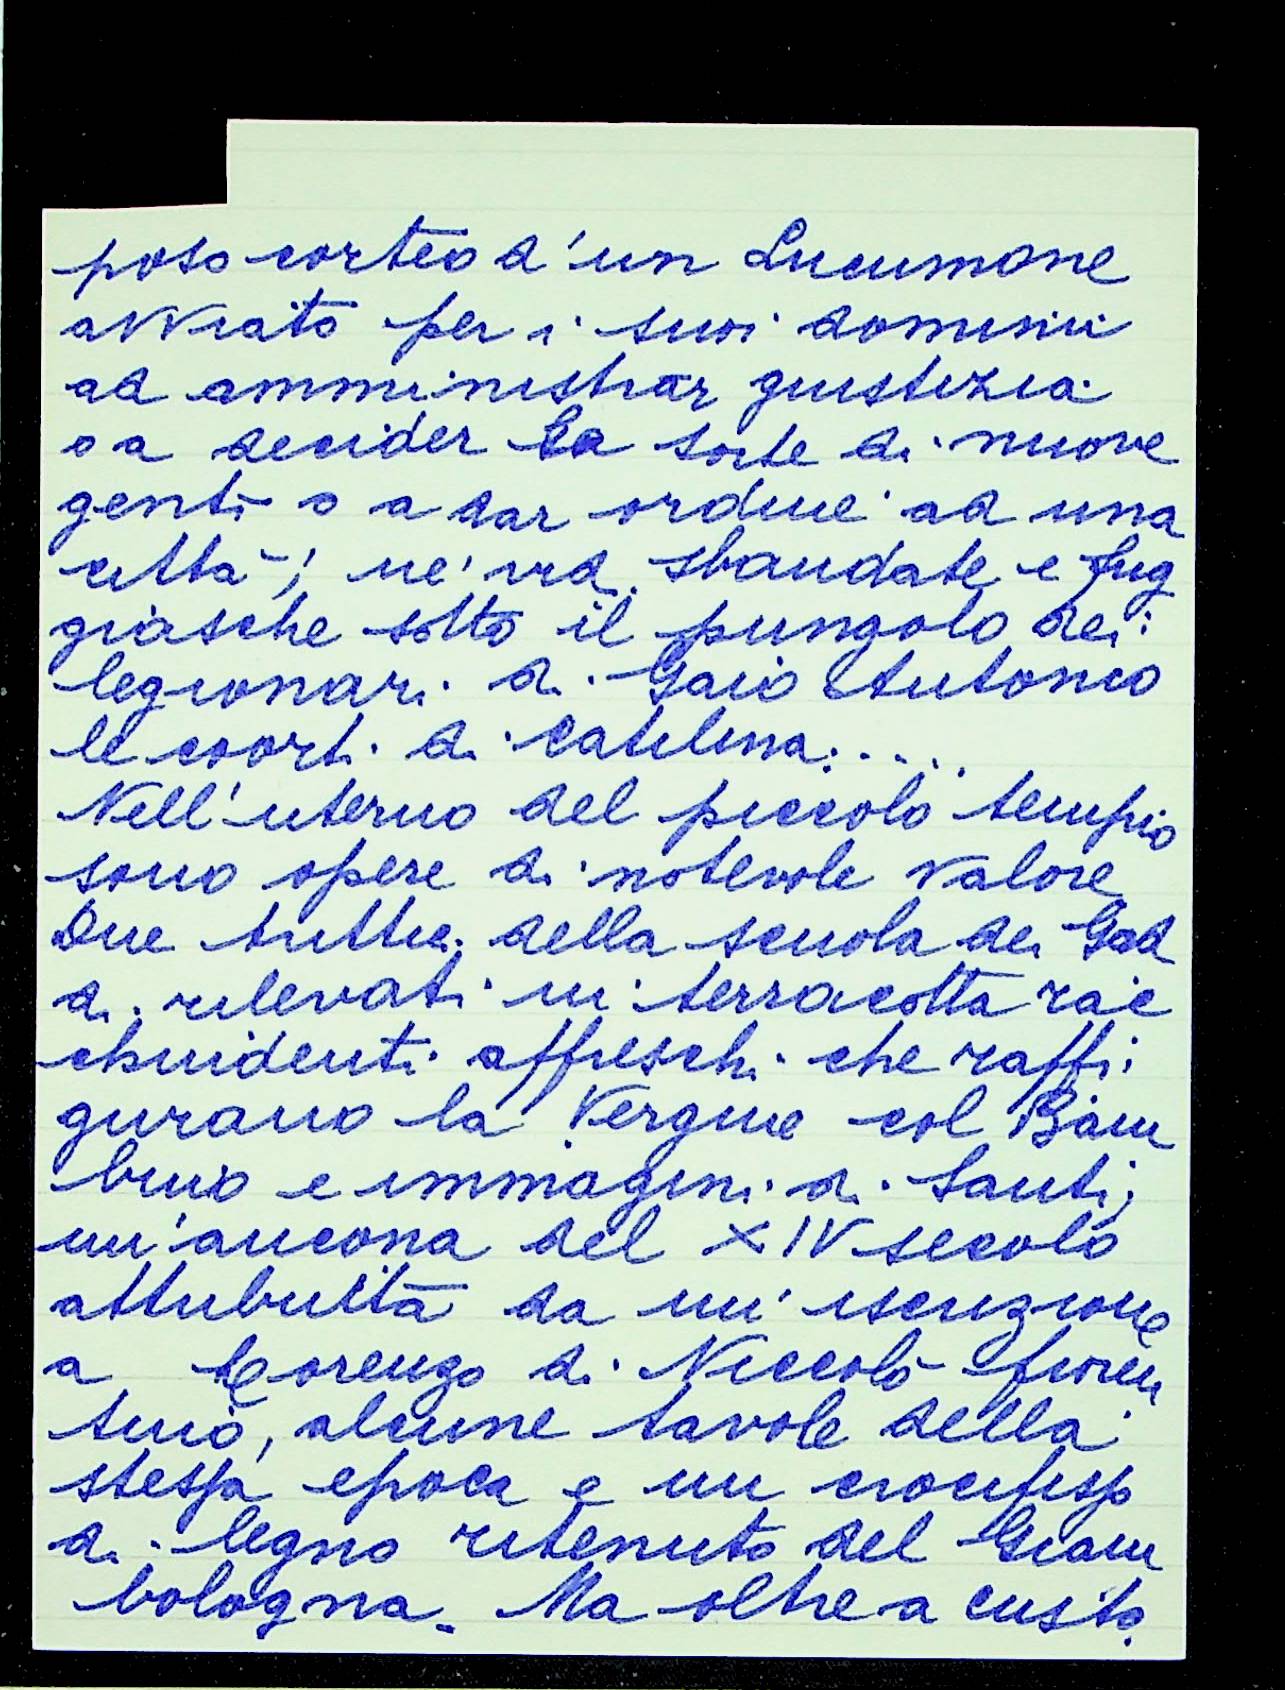 poso corteo d'un Lucumone
avviato per i suoi dominii
ad amministrar giustizia
o a decider la sorte di nuove
genti o a dar ordine ad una
città; né vid. sbandate e fug
giasche sotto il pungolo dei
legionari di Gaio Antonio
le coorti di Catilina.....
Nell'interno del piccolo tempio
sono opere di notevole valore
Due trittici della scuola dei Gad
di, rilevati in terracotta rac
chiudenti affreschi che raffi
gurano la Vergine col Bam
bino e immagini di Santi;
un'ancona del XIV secolo
attribuita da un'iscrizione
a Lorenzo di Niccolò fioren
tino, alcune tavole della
stessa epoca e un crocifisso
di legno ritenuto del Giam
bologna. Ma oltre a custo